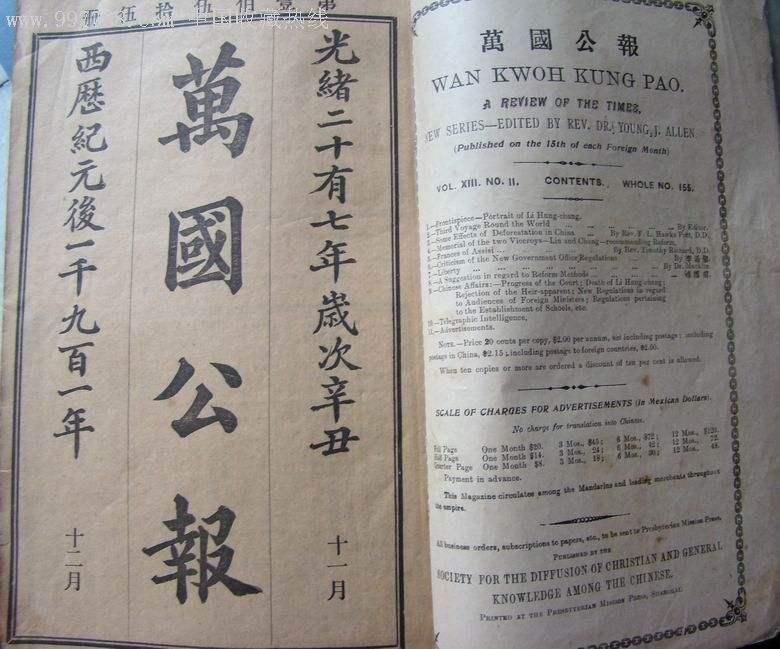 第壹伯伍拾伍號
光緒二十有七年歲次辛丑
十一月
萬國公報
西歷紀元後一千九百一年
十二月
萬國公報
WAN KWOH KUNG PAO.
A REVIEW OF THE TIMES.
NEW SERIES—EDITED BY REV. DR. YOUNG J. ALLEN.
(Published on the 15th of each Foreign Month)
VOL. XIII. NO. 11. CONTENTS. WHOLE NO. 155.
1.—Frontispiece—Portrait of Li Hung-chang.
2.—Third Voyage Round the World ... By Editor.
3.—Some Effects of Deforestation in China ... By Rev. F. L. Hawks Pott, D.D.
4.—Memorial of the two Viceroys—Liu and Chang—recommending Reform.
5.—Frances of Assisi ... By Rev. Timothy Richard, D.D.
6.—Criticism of the New Government Office Regulations By
7.—Liberty ... By Dr. Macklin.
8.—A Suggestion in regard to Reform Methods
9.—Chinese Affairs:—Progress of the Court; Death of Li Hung-chang;
Rejection of the Heir-apparent; New Regulations in regard
to Audiences of Foreign Ministers; Regulations pertaining
to the Establishment of Schools, etc.
10.—Telegraphic Intelligence.
11.—Advertisements.
NOTE.—Price 20 cents per copy, $2.00 per annum, not including postage; including
postage in China, $2.15; including postage to foreign countries, $2.50.
When ten copies or more are ordered a discount of ten per cent is allowed.
SCALE OF CHARGES FOR ADVERTISEMENTS (in Mexican Dollars).
No charge for translation into Chinese.
Full Page One Month $20. 3 Mos., $45; 6 Mos., $72; 12 Mos., $120.
Half Page One Month $14. 3 Mos., 24; 6 Mos., 42; 12 Mos., 72.
Quarter Page One Month $8. 3 Mos., 18; 6 Mos., 30; 12 Mos., 48.
Payment in advance.
This Magazine circulates among the Mandarins and leading merchants throughout
the empire.
All business orders, subscriptions to papers, etc., to be sent to Presbyterian Mission Press.
PUBLISHED BY THE
SOCIETY FOR THE DIFFUSION OF CHRISTIAN AND GENERAL
KNOWLEDGE AMONG THE CHINESE.
PRINTED AT THE PRESBYTERIAN MISSION PRESS, SHANGHAI.